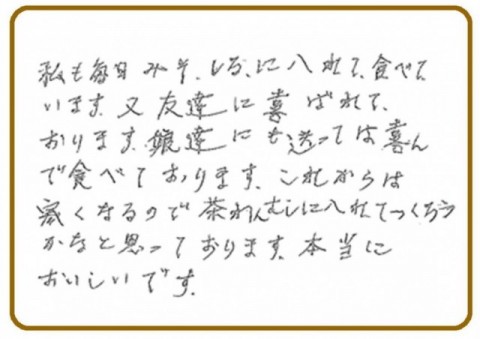 私も毎日みそ、しる、に入れて、食べて
います。又友達に喜ばれて、
おります。娘達にも送っては喜ん
で食べております。これからは
寒くなるので茶わんむしに入れてつくろう
かなと思っております。本当に
おいしいです。